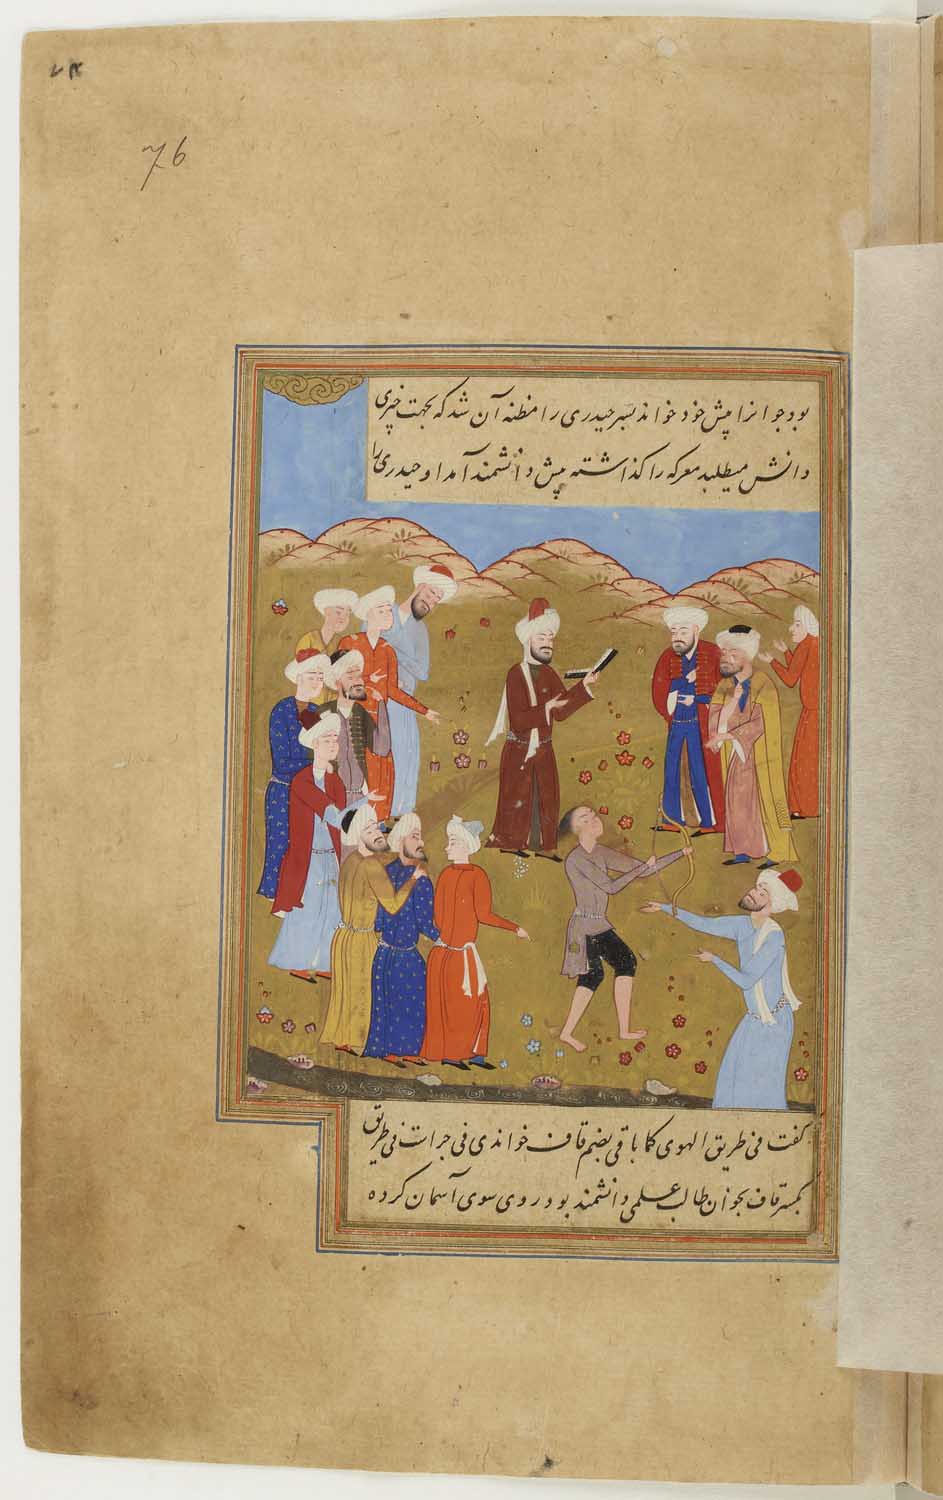 76
بود جوانرا پیش خود خواند بسر حیدری را مظنه آن شد که بجهت خبری
دانش میطلبد معرکه را کذاشته پیش دانشمند آمد او حیدری را
کفت فی طریق الهوی کما باقی بضم قاف خواندی فی جرات فی طریق
بکسر قاف بخوان طالب علمی دانشمند بود روی سوی آسمان کرده